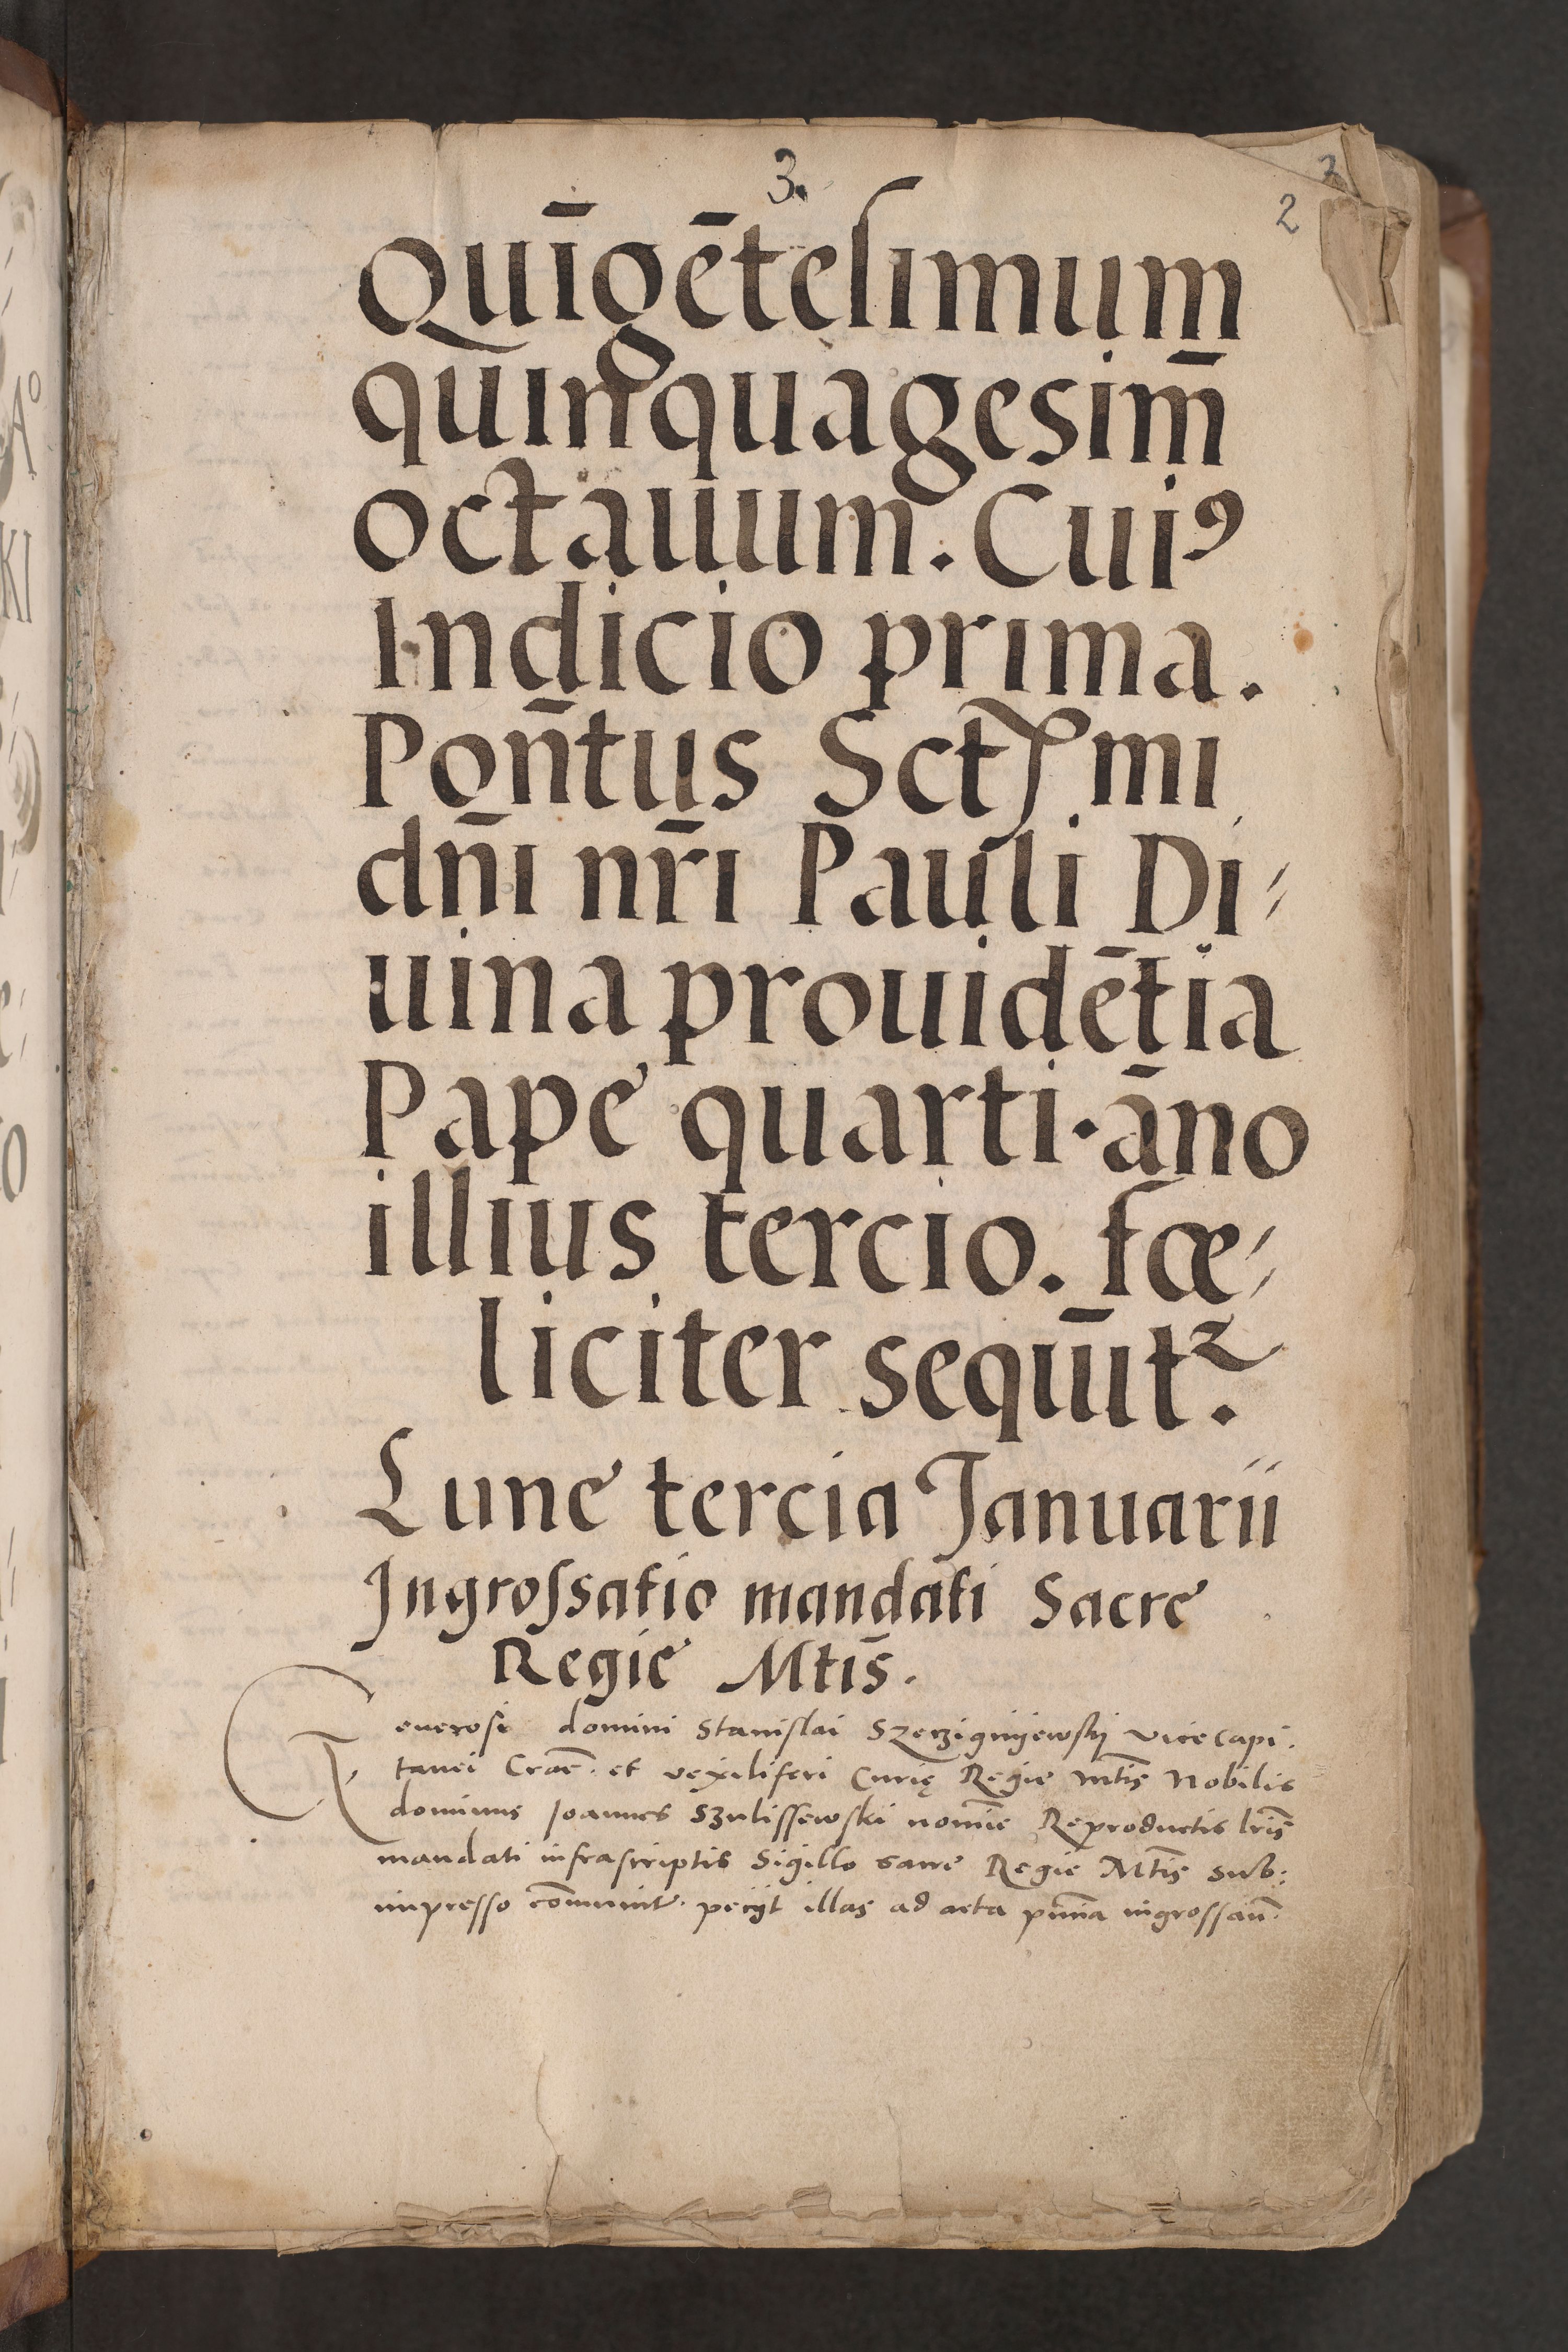 3.
2
Quīgētesimum
quinquagesim̄
octauum. Cuiꝰ
Indicio prima.
Pon̄tus Sctꝭmi
dn̄i nr̄i Pauli Di⸗
uina prouidētia
Pape quarti. āno
illius tercio. fœ⸗
liciter sequūtꝛ.
Lune tercia Januarii
Ingroſsatio mandati Sacre
Regie Mtis̄.
Generosi domini Stanislai Szerzignijewskij vicecapi.
tanei Craē. et vexiliferi Curię Regie mt̄is Nobilis
dominus Joannes Szulissewski noīe Reproductis lr̄is
mandati infrascriptis Sigillo sacre Regie Mt̄is sub:
impresso cōmunit. pecijt illas ad acta pn̄tia ingrossarī.